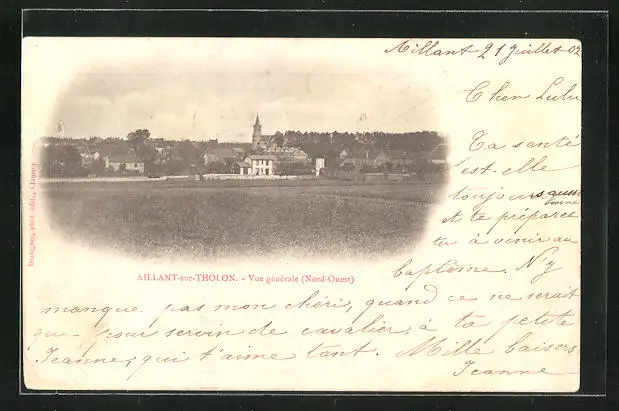 Aillant 21 Juillet 02
Cher Lulu
Ta santé
est-elle
toujours aussi
bonne
et te prépares
tu à venir au
baptême. N'y
manque pas mon chéri, quand ce ne serait
que pour servir de cavalier, à ta petite
Jeanne, qui t'aime tant. Mille baisers
Jeanne
AILLANT-sur-THOLON. - Vue générale (Nord-Ouest)
phot.-édit.,